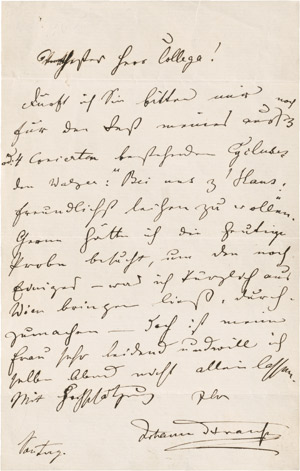 Verehrtester Herr Collega!
Dürft ich Sie bitten mir noch
für den Rest meines aus
4 Concerten bestehenden Cyclus
den Walzer: "Bei uns z' Haus"
freundlichst leihen zu wollen.
Gerne hätte ich die heutige
Probe besucht, um den noch
Einiges – was ich kürzlich aus
Wien bringen ließ, durch-
zumachen – doch ist meine
Frau sehr leidend und will ich
selben Abend nicht allein lassen.
Mit Hochschätzung
Johann Strauss
Sontag.